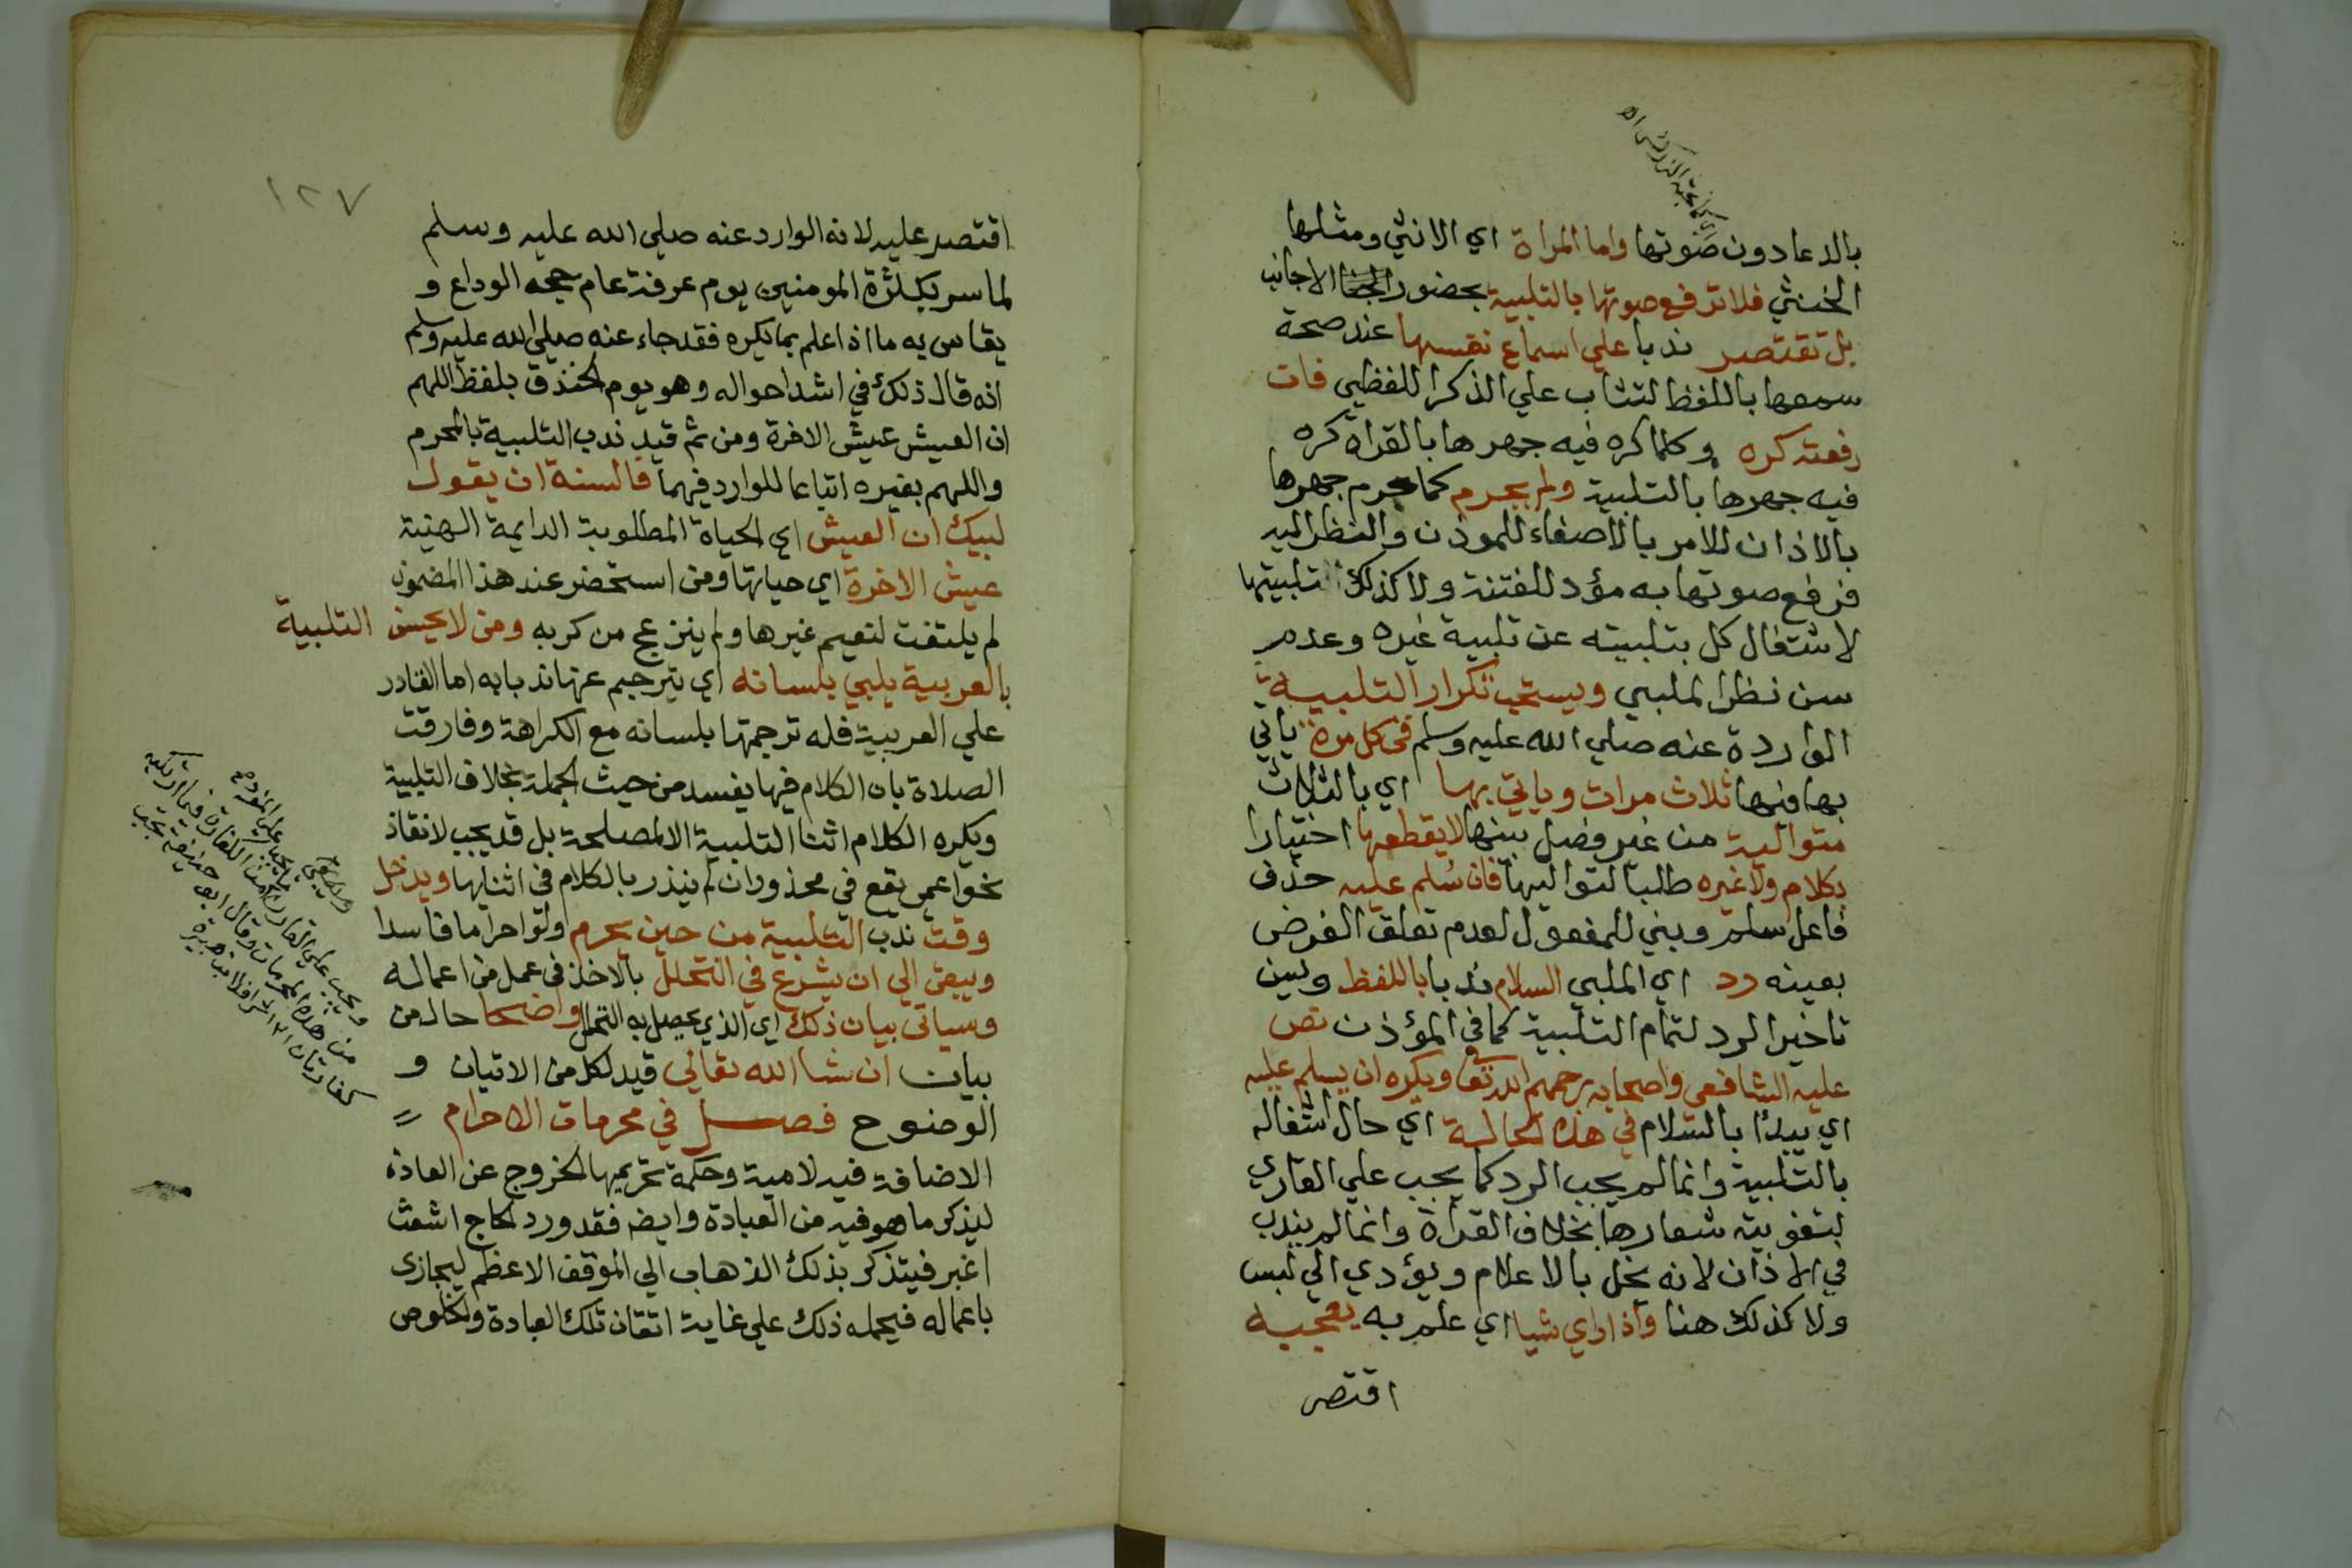 بالدعا دون صوتها واما المراة اي الانثي ومثلها
الخنثي فلا ترفع صوتها بالتلبية بحضور الاجانب
بل تقتصر ندبا علي اسماع نفسها عند صحة
سمعها باللفظ لتثاب علي الذكر اللفظي فان
رفعته كره وكلما كره فيه جهرها بالقراة كره
فيه جهرها بالتلبية ولم يحرم كما حرم جهرها
بالاذان للامر بالاصغاء للموذن والنظر اليه
فرفع صوتها به مؤد للفتنة ولا كذلك تلبيتها
لاشتغال كل بتلبيته عن تلبية غيره وعدم
سن نظر الملبي ويستحب تكرار التلبية
الواردة عنه صلي الله عليه وسلم في كل مرة ياتي
بها فيها ثلاث مرات وياتي بها اي بالثلاث
متوالية من غير فصل بينها لا يقطعها اختيارا
بكلام ولا غيره طلبا لتواليها فان سُلم عليه حذف
فاعل سلم وبني للمفعول لعدم تعلق الغرض
بعينه رد اي الملبي السلام ندبا باللفظ وسن
تاخير الرد لتمام التلبية كما في المؤذن نص
عليه الشافعي واصحابه رحمهم الله تعا ويكره ان يسلم عليه
اي يبدأ بالسلام في هذه الحالة اي حال اشتغاله
بالتلبية وانما لم يجب الرد كما يجب علي القاري
لتفويته شعارها بخلاف القراة وانما لم يندب
في الاذان لانه يخل بالاعلام ويؤدي الي لبس
ولا كذلك هنا واذا راي شيا اي علم به يعجبه
اقتصر
١٢٧
اقتصر عليه لانه الوارد عنه صلي الله عليه وسلم
لما سر بكثرة المومنين يوم عرفة عام حجه الوداع و
يقاس به ما اذا علم بما يكره فقد جاء عنه صلي الله عليه وسلم
انه قال ذلك في اشد احواله وهو يوم الخندق بلفظ اللهم
ان العيش عيش الاخرة ومن ثم قيد ندب التلبية بالمحرم
واللهم بغيره اتباعا للوارد فيهما فالسنة ان يقول
لبيك ان العيش اي الحياة المطلوبة الدايمة الهنية
عيش الاخرة اي حياتها ومن استحضر عند هذا المضمون
لم يلتفت لنعيم غيرها ولم ينزعج من كربه ومن لا يحسن التلبية
بالعربية يلبي بلسانه اي يترجم عنها ندبا به اما القادر
علي العربية فله ترجمتها بلسانه مع الكراهة وفارقت
الصلاة بان الكلام فيها يفسد من حيث الجملة بخلاف التلبية
ويكره الكلام اثنا التلبية الا لمصلحة بل قد يجب لانقاذ
نحو اعمي يقع في محذور ان لم ينذر بالكلام في اثنايها ويدخل
وقت ندب التلبية من حين يحرم ولو احراما فاسدا
ويبقي الي ان يشرع في التحلل بالاخذ في عمل من اعماله
وسياتي بيان ذلك اي الذي يحصل به التحلل واضحا حال من
بيان ان شا الله تعالي قيد لكل من الاتيان و
الوضوح فصل في محرمات الاحرام
الاضافة فيه لامية وحكمة تحريمها الخروج عن العادة
ليذكر ما هو فيه من العبادة وايضه فقد ورد الحاج اشعث
اغبر فيتذكر بذلك الذهاب الي الموقف الاعظم ليجازى
باعماله فيحمله ذلك علي غاية اتقان تلك العبادة والخلوص